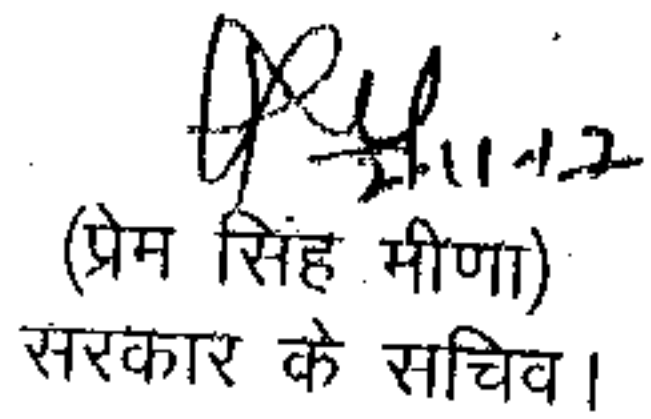 (प्रेम सिंह मीणा)
सरकार के सचिव।